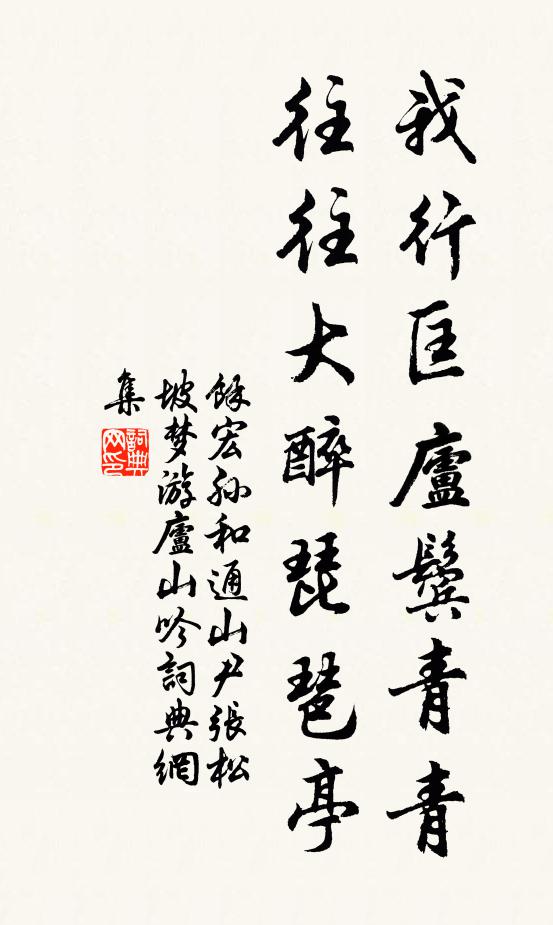 我行匡廬鬢青青
往往大醉琵琶亭
餘宏孫和通山尹張松
坡梦游廬山吟詞典網
集
詞典網印